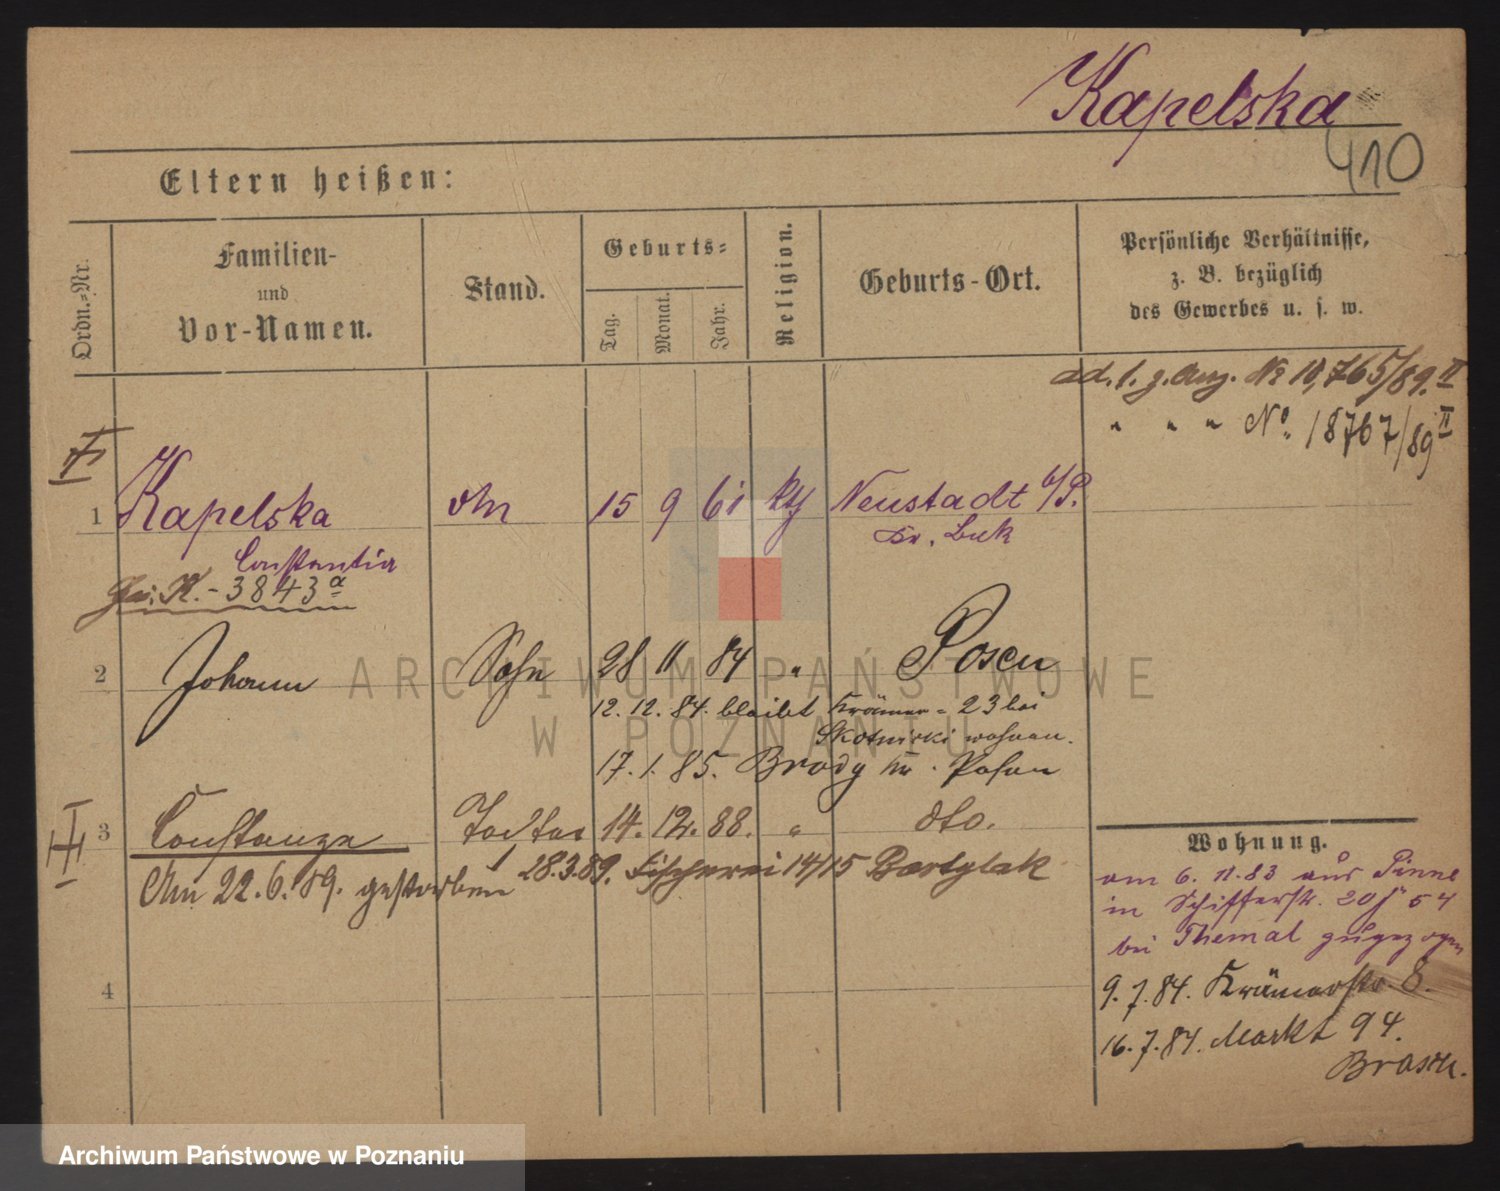 Kapelska
410
Eltern heißen:
Ordn.=Nr.
Familien-
und
Vor-Namen.
Stand.
Geburts=
Tag.
Monat.
Jahr.
Religion.
Geburts-Ort.
Persönliche Verhältnisse,
z. B. bezüglich
des Gewerbes u. s. w.
ad. 1. g. Anz. No 10,765/89. II
" " " No. 18767/89 II
I
1 Kapelska 15 9 61 kth Neustadt b/P.
Constantia Kr. Buk
K.-3843a
2 Johann Sohn 28 11 84 " Posen
12. 12. 84. bleibt Krämer = 23 bei
Skotnicki wohnen.
17. 1. 85. Brody Kr. Posen
III
3 Constanze Tochter 14. 12. 88. " dto.
28.3.89. Fischerei 14/15 Bartylak
Am 22. 6. 89. gestorben
4
Wohnung.
am 6. 11. 83 aus Pinne
in Schifferstr. 20
bei Themal zugezogen
9. 7. 84. Krämerstr. 8.
16. 7. 84. Markt 94.
Brasch.
ARCHIWUM PAŃSTWOWE
W POZNANIU
Archiwum Państwowe w Poznaniu